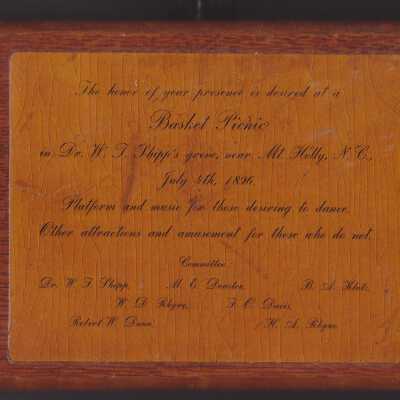 The honor of your presence is desired at a
Basket Picnic
in Dr. W. T. Shipp's grove, near Mt. Holly, N. C.,
July 4th, 1896.
Platform and music for those desiring to dance.
Other attractions and amusement for those who do not.
Committee.
Dr. W. T. Shipp, M. E. B. A.
W. D. F. C. Davis,
Robert W. Dunn, H. A.